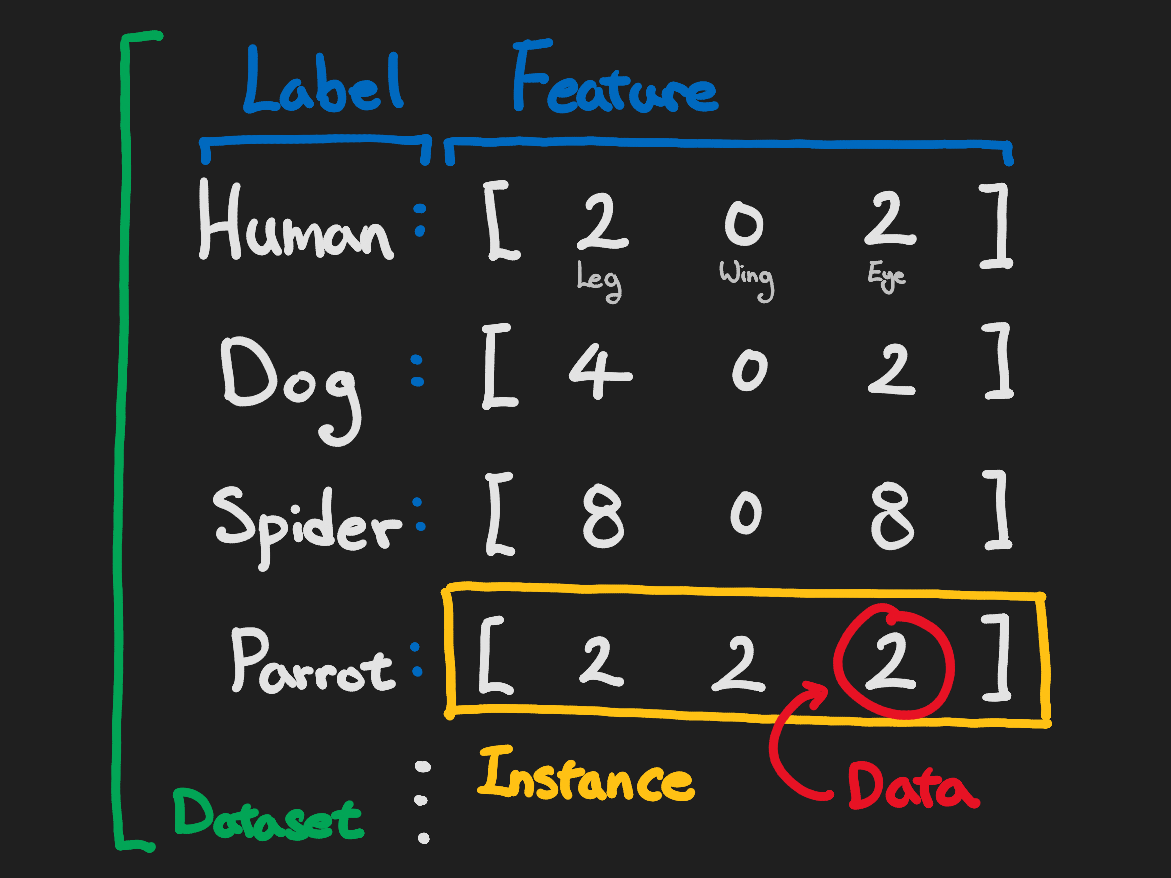 Label Feature
Human : [ 2 0 2 ]
Leg Wing Eye
Dog : [ 4 0 2 ]
Spider : [ 8 0 8 ]
Parrot : [ 2 2 2 ]
Instance
Data
Dataset